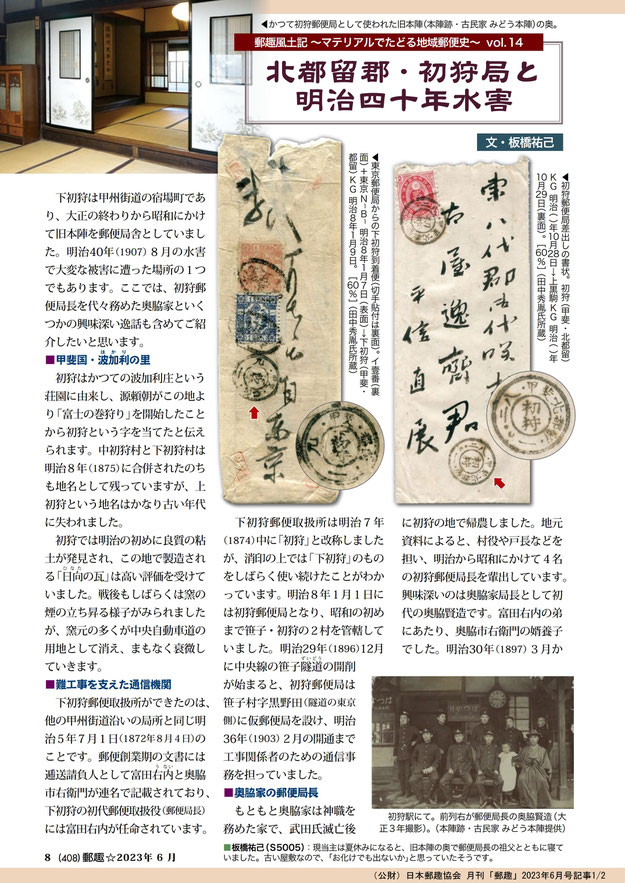 ◀かつて初狩郵便局として使われた旧本陣(本陣跡・古民家 みどう本陣)の奥。
郵趣風土記 ～マテリアルでたどる地域郵便史～ vol.14
北都留郡・初狩局と
明治四十年水害
文・板橋祐己
◀東京郵便局からの下初狩到着便(切手貼付は裏面)。イ壹番(裏
面)＋東京N-B- 明治8年1月7日(表面)→下初狩(甲斐・
都留)KG 明治8年1月9日。 [60%](田中秀胤氏所蔵)
◀初狩郵便局差出しの書状。初狩(甲斐・北都留)
KG 明治( )年10月28日→上黒駒KG 明治( )年
10月29日(裏面)。[60%](田中秀胤氏所蔵)
東八代郡
古屋逸齊君
平信直展
東京
初狩
下初狩は甲州街道の宿場町であ
り、大正の終わりから昭和にかけ
て旧本陣を郵便局舎としていまし
た。明治40年(1907)８月の水害
で大変な被害に遭った場所の１つ
でもあります。ここでは、初狩郵
便局長を代々務めた奥脇家といく
つかの興味深い逸話も含めてご紹
介したいと思います。
■甲斐国・波加利の里
はかり
初狩はかつての波加利庄という
荘園に由来し、源頼朝がこの地よ
り「富士の巻狩り」を開始したこと
から初狩という字を当てたと伝え
られます。中初狩村と下初狩村は
明治８年(1875)に合併されたのち
も地名として残っていますが、上
初狩という地名はかなり古い年代
に失われました。
初狩では明治の初めに良質の粘
土が発見され、この地で製造され
る「日向の瓦」は高い評価を受けて
ひなた
いました。戦後もしばらくは窯の
煙の立ち昇る様子がみられました
が、窯元の多くが中央自動車道の
用地として消え、まもなく衰微し
ていきます。
■難工事を支えた通信機関
下初狩郵便取扱所ができたのは、
他の甲州街道沿いの局所と同じ明
治５年７月１日(1872年8月4日)の
ことです。郵便創業期の文書には
逓送請負人として富田右内と奥脇
うない
市右衛門が連名で記載されており、
下初狩の初代郵便取扱役(郵便局長)
には富田右内が任命されています。
下初狩郵便取扱所は明治７年
(1874)中に「初狩」と改称しました
が、消印の上では「下初狩」のもの
をしばらく使い続けたことがわか
っています。明治８年１月１日に
は初狩郵便局となり、昭和の初め
まで笹子・初狩の２村を管轄して
いました。明治29年(1896)12月
に中央線の笹子隧道の開削
ずいどう
が始まると、初狩郵便局は
笹子村字黒野田(隧道の東京
側)に仮郵便局を設け、明治
36年(1903)２月の開通まで
工事関係者のための通信事
務を担っていました。
■奥脇家の郵便局長
もともと奥脇家は神職を
務めた家で、武田氏滅亡後
に初狩の地で帰農しました。地元
資料によると、村役や戸長などを
担い、明治から昭和にかけて４名
の初狩郵便局長を輩出しています。
興味深いのは奥脇家局長として初
代の奥脇賢造です。富田右内の弟
にあたり、奥脇市右衛門の婿養子
でした。明治30年(1897)３月か
初狩駅にて。前列右が郵便局長の奥脇賢造(大
正３年撮影)。(本陣跡・古民家 みどう本陣提供)
■板橋祐己(S5005)：現当主は夏休みになると、旧本陣の奥で郵便局長の祖父とともに寝て
いました。古い屋敷なので、「お化けでも出ないか」と思っていたそうです。
8 (408)郵趣☆2023年 6月
(公財)日本郵趣協会 月刊「郵趣」2023年6月号記事1/2